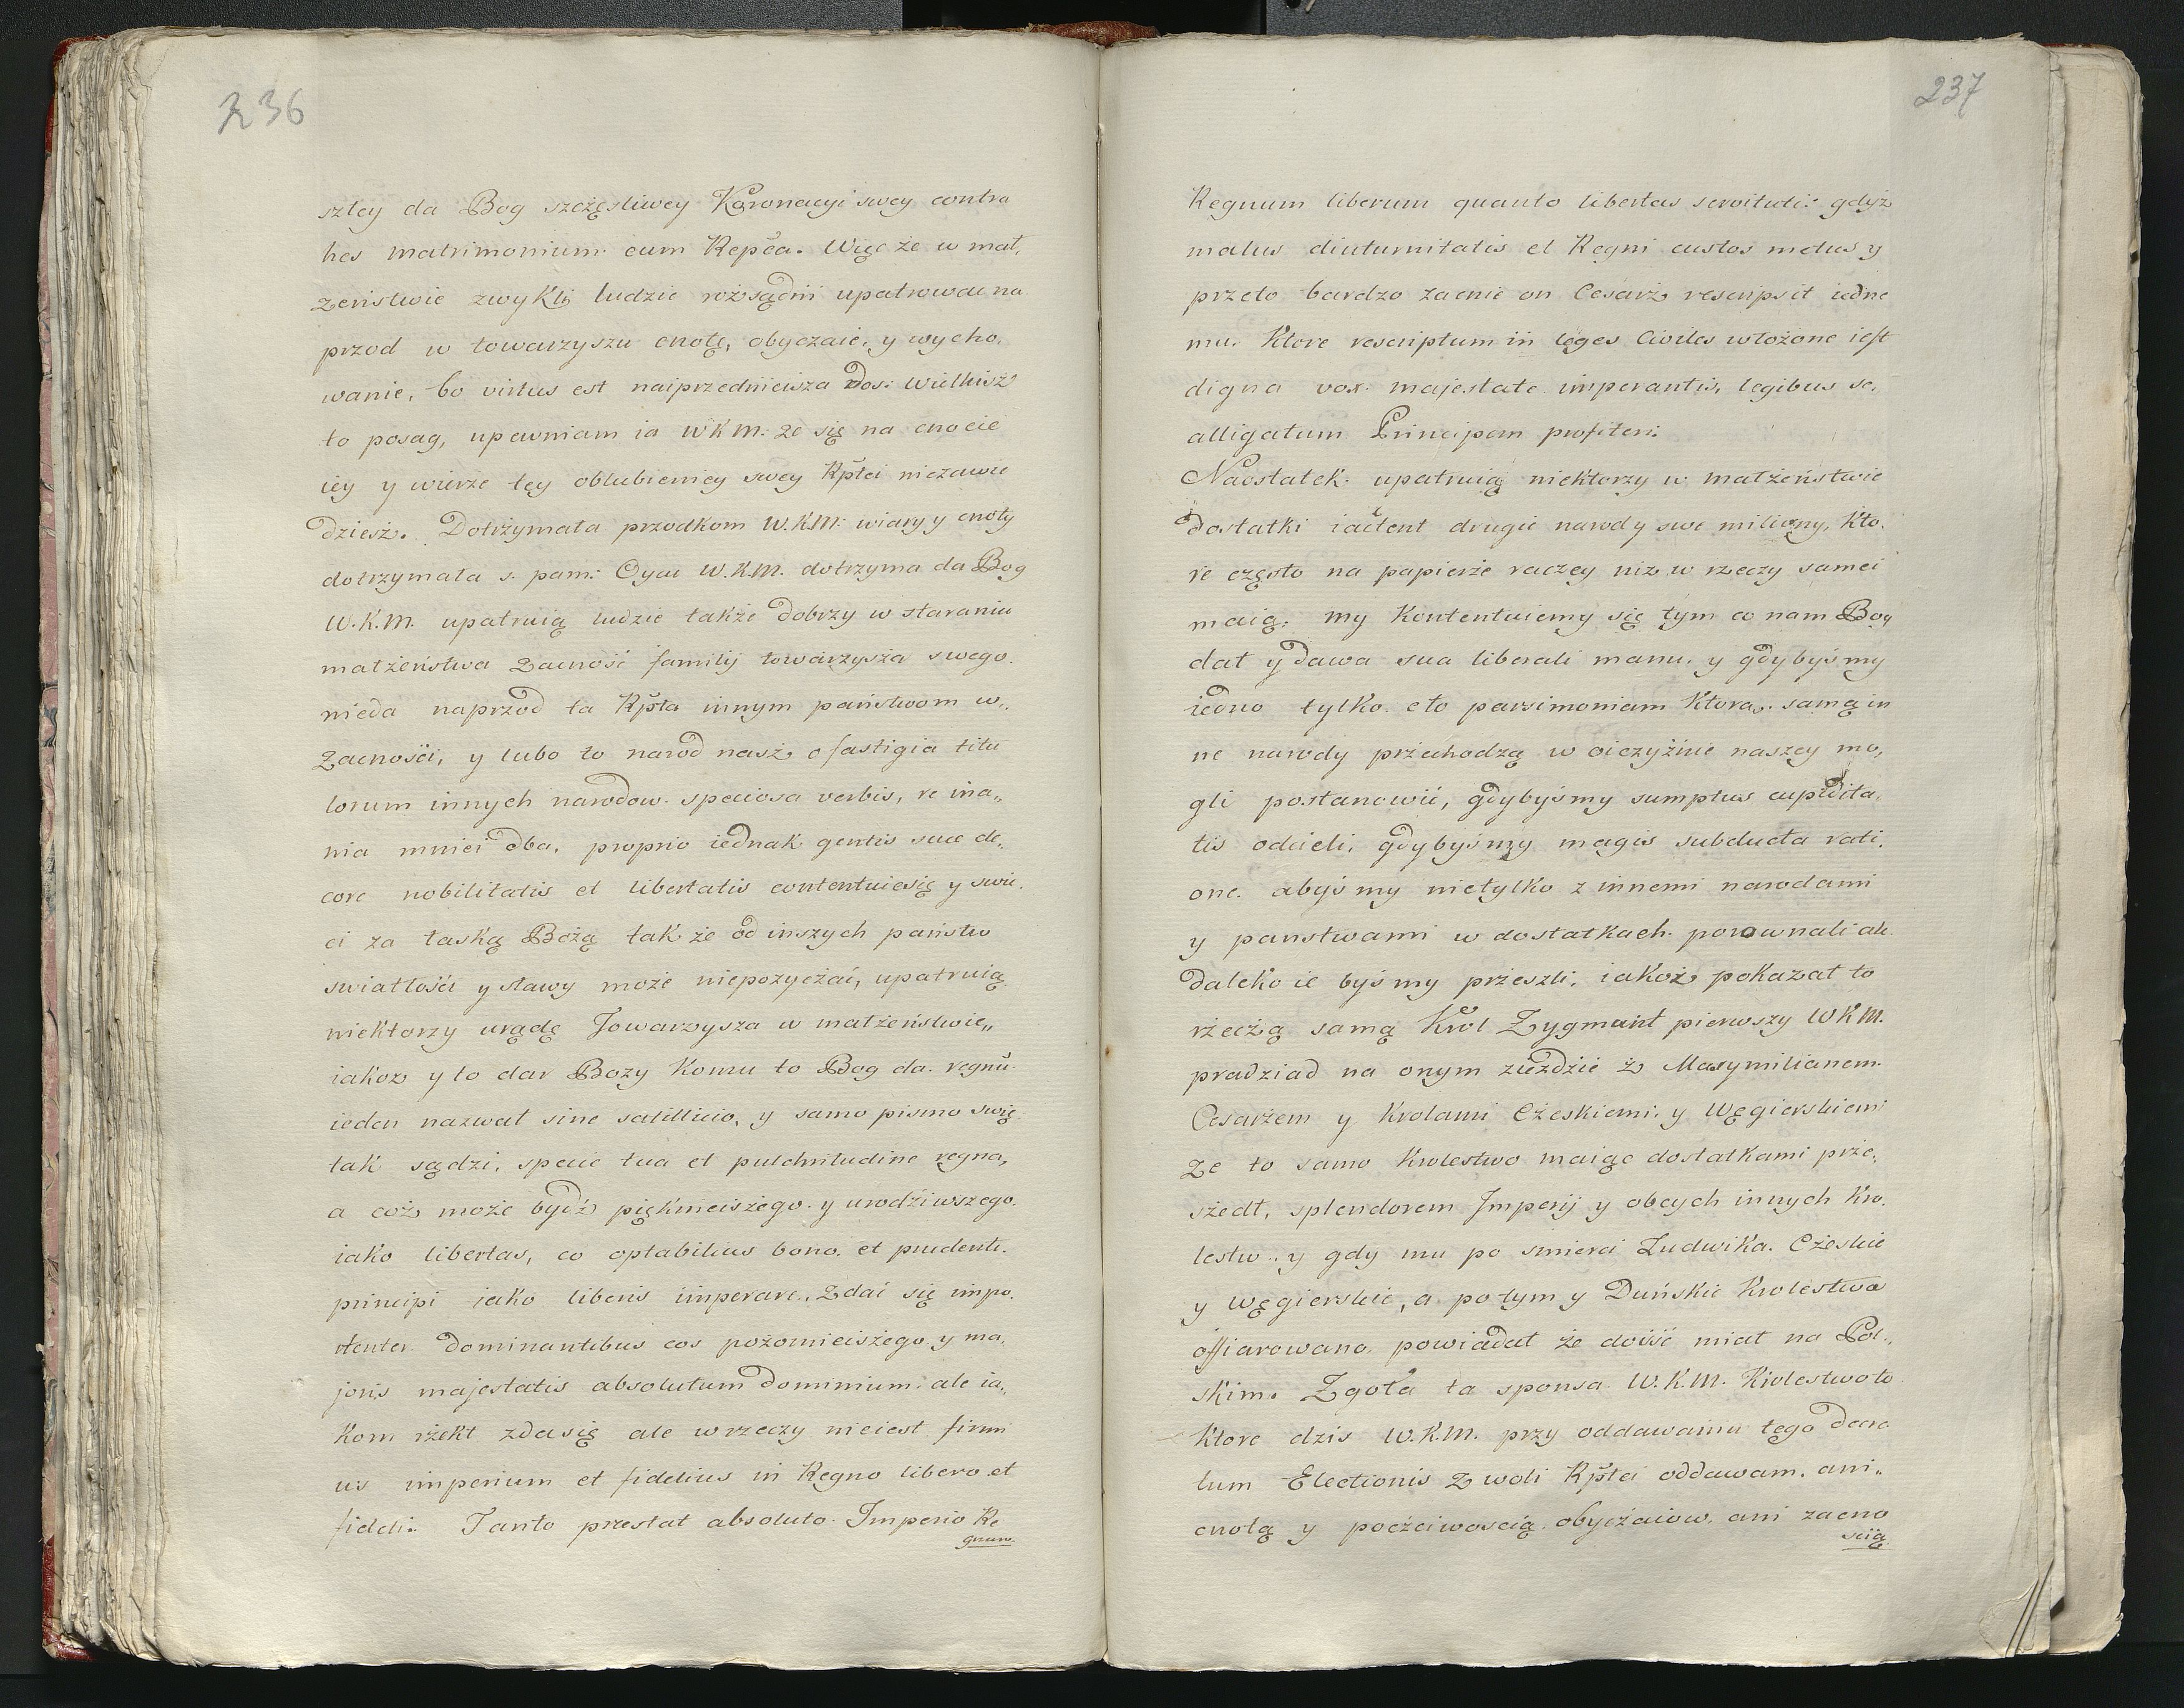 236
sztey da Bog szczęsliwey Koronacyi swey contra
hes matrimonium cum Repcã. Więc że w mał,
zeństwie zwykli ludzie rożsądni upatrowac na
przod w towarzyszu cnotę, obyczaie, y wycho,
wanie, bo virtus est naiprzednieisza Dos: Wielkisz
to posag, upewniam ia WKM: że się na cnocie
iey y wierze tey oblubienicy swey Rptei niezawie
dziesz. Dotrżymała przodkom W.K.M: wiary y cnoty
dotrzymała s. pam: Oycu W.K.M. dotrzyma da Bog
W.K.M. upatruią ludzie także dobrzy w staraniu
małżeństwa zacność familij towarzysza swego
nieda naprzod ta Rpta innym państwom w,,
zacnosći, y lubo to narod nasz o fastigia titu
lorum innych narodow speciosa verbis, re ina,,
nia mniei dba, proprio iednak gentis suae de,,
core nobilitatis et libertatis contentuiesię y swie,
ci za łaską Bożą tak że od inszych państw
swiatłośći y sławy może niepozyczać, upatruią
niektorzy urądę Towarzysza w małżeństwie,,
iakoz y to dar Bozy Komu to Bog da. regnũ
ieden nazwał sine satillicio, y samo pismo swię
tak sądzi, specie tua et pulchritudine regna,
a coż może bydź pięknieiszego y urodźiwszego
iako libertas, co optabilius bono et prudenti
principi iako liberis imperare. Zdać się impo,
tenter Dominantibus cos pożornieiszego y ma,
joris majestatis absolutum Dominium ale ia,
kom rżekł zdasię ale w rzeczy nieiest firmi
us imperium et fidelius in Regno libero et
fideli. Tanto prestat absoluto Imperio Re
gnum.
237
Regnum liberum quanto libertas servituti: gdyż
malus diuturnitatis et Regni custos metus y
przeto bardzo zacnie on Cesarż rescripsit iedne
mu. Ktore rescriptum in leges Civiles włożone iest
digna vox majestate imperantis, legibus se,
alligatum Principem profiteri.
Naostatek upatruią niektorzy w małżeństwie
dostatki iactent drugie narody swe miliony, Kto,
re często na papierże raczey niż w rzeczy samei
maią, my Kontentuiemy się tym co nam Bog
dał y dawa sua liberali manu, y gdybyśmy
iedno tylko eto parsimoniam Ktorą samą in
ne narody przechodzą w oiczyżnie naszey mo,
gli postanowić, gdybyśmy sumptus cupidita,
tis odcieli, gdybyśmy magis subducta rati,
one. abyśmy nietylko z innemi narodami
y panstwami w dostatkach porownali ale
daleko ie byśmy przeszli, iakoż pokazał to
rżeczą samą Krol Zygmunt pierwszy WKM.
pradziad na onym zieżdzie ż Maxymilianem
Cesarżem y Krolami Czeskiemi y Węgierskiemi
że to samo Krolestwo maiąc dostatkami prze,
szedł, splendorem Imperij y obcych innych Kro,
lestw. y gdy mu po smierci Ludwika Czeskie
y Węgierskie, a potym y Duńskie Krolestwa
offiarowano powiadał że dośść miał na Pol,
skim. Zgoła ta sponsa W.K.M. Krolestwo to
Ktore dzis W.K.M. przy oddawaniu tego Decre
tum Electionis z woli Rptei oddawam, ani,,
cnotą y poczciwoscią obyczaiow, ani zacno
scią